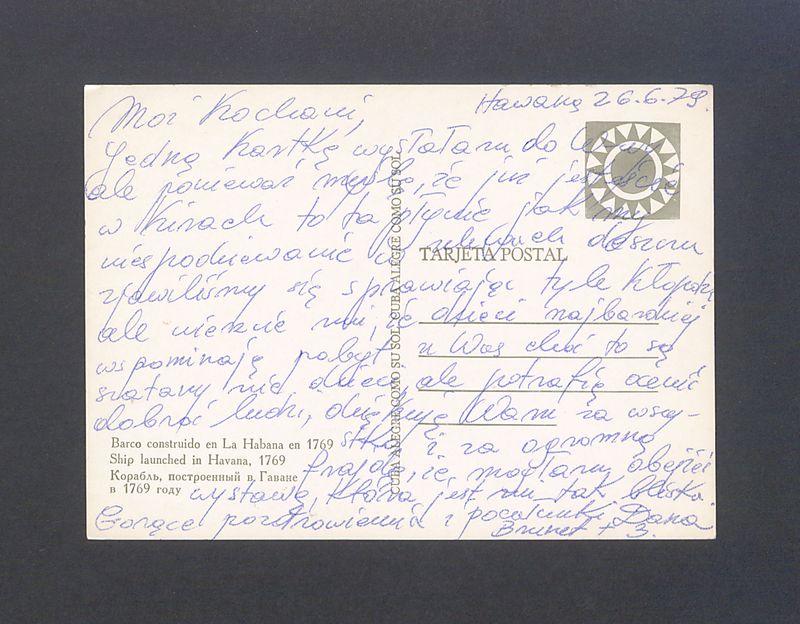 Hawana 26.6.79.
Moi Kochani,
Jedną kartkę wysłałam do
ale ponieważ myślę, że już jesteście
w to ta płynie jak my
niespodziewanie w deszczu
zjawiliśmy się sprawiając tyle kłopotu
ale wierzcie mi, że dzieci najbardziej
wspominają pobyt u Was choć to są
szatany nie dzieci, ale potrafią ocenić
dobroć ludzi, dziękuję Wam za wszy-
stko i za ogromną
frajdę, że mogłam obejść
wystawę, która jest mi tak bliska
Gorące pozdrowienia i pocałunki Dana
+ 3.
TARJETA POSTAL
CUBA ALEGRE COMO SU SOL. CUBA ALEGRE COMO SU SOL
Barco construido en La Habana en 1769
Ship launched in Havana, 1769
Корабль, построенный в Гаване
в 1769 году